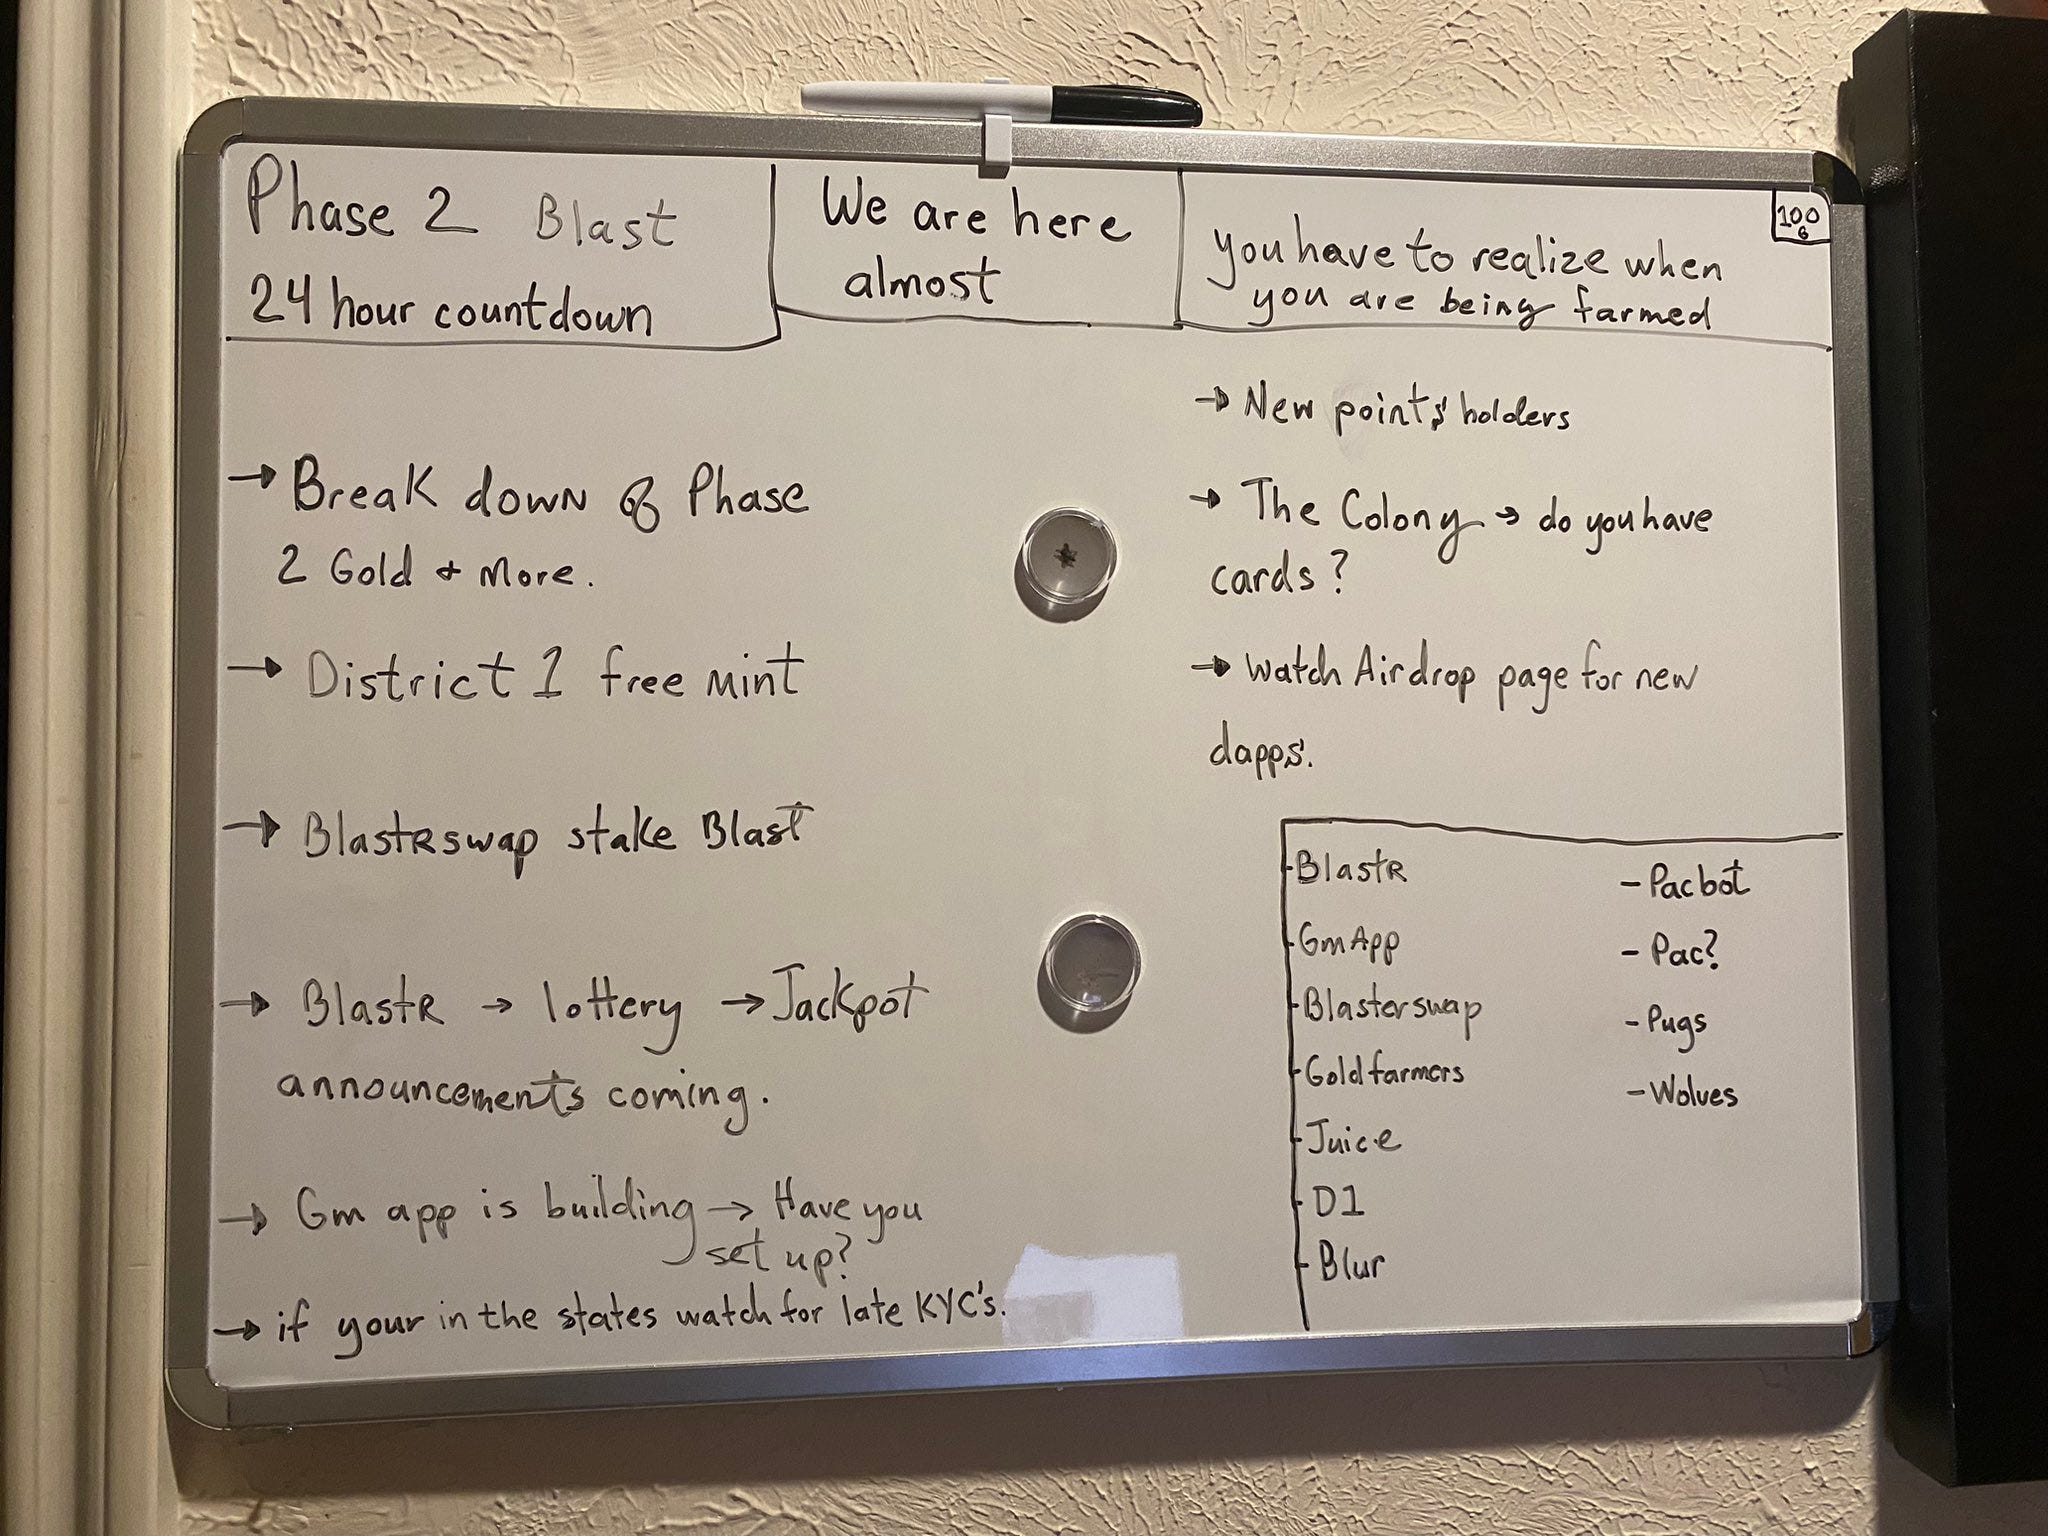 Phase 2 Blast
24 hour countdown
We are here
almost
you have to realize when
you are being farmed
100
G
→ Break down of Phase
2 Gold + More.
→ District 1 free mint
→ BlastRswap stake Blast
→ BlastR → lottery → Jackpot
announcements coming.
→ Gm app is building → Have you
set up?
→ if your in the states watch for late KYC's.
→ New points' holders
→ The Colony → do you have
cards?
→ watch Airdrop page for new
dapps'.
- BlastR
- Gm App
- Blasterswap
- Goldfarmers
- Juice
- D1
- Blur
- Pacbot
- Pac?
- Pugs
- Wolves